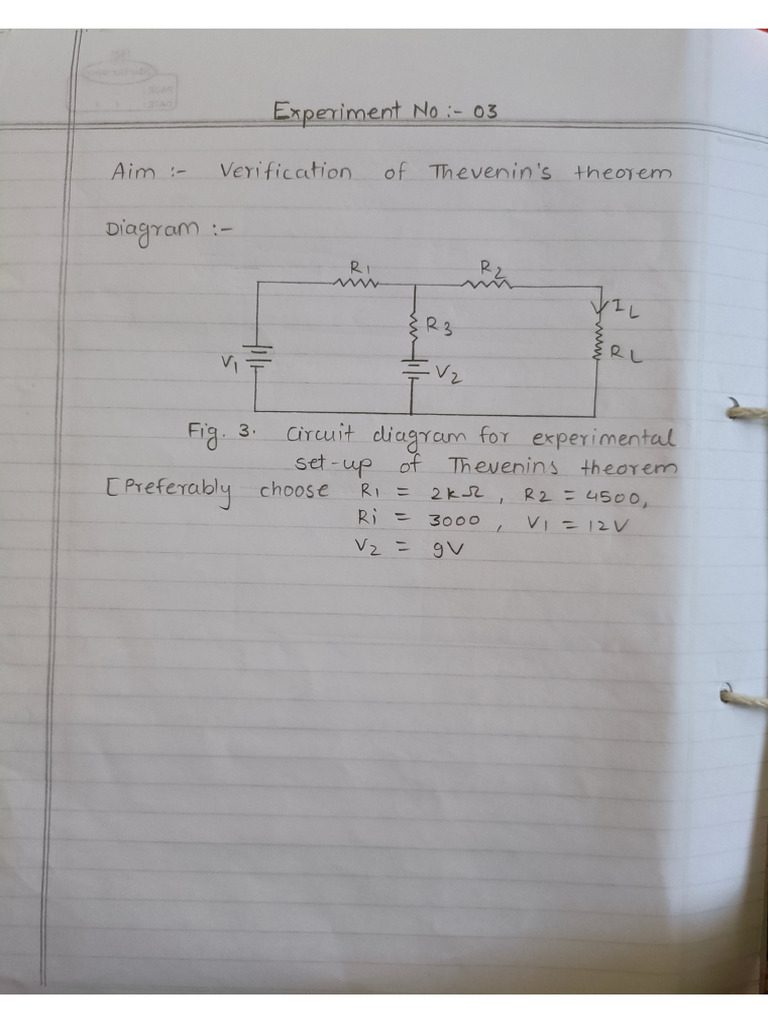 Experiment No :- 03
Aim :- Verification of Thevenin's theorem
Diagram :-
R1 R2
IL
R3
RL
V1
V2
Fig. 3. Circuit diagram for experimental
set-up of Thevenins theorem
[Preferably choose R1 = 2kΩ, R2 = 4500,
Ri = 3000, V1 = 12V
V2 = 9V